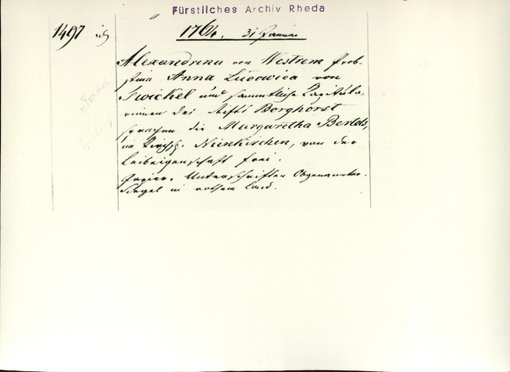 Fürstliches Archiv Rheda
1497 1764. 31 Januar
Alexandrina von Westrem Prob-
stin Anna Ludowica von
Twickel und sämmtliche Capitula-
rinnen des Stifts Borghorst
sprachen die Margaretha Bertels,
im Kirchsp. Nienkirchen, von der
Leibeigenschaft frei.
Papier. Unterschriften
Siegel in rothem Lack.